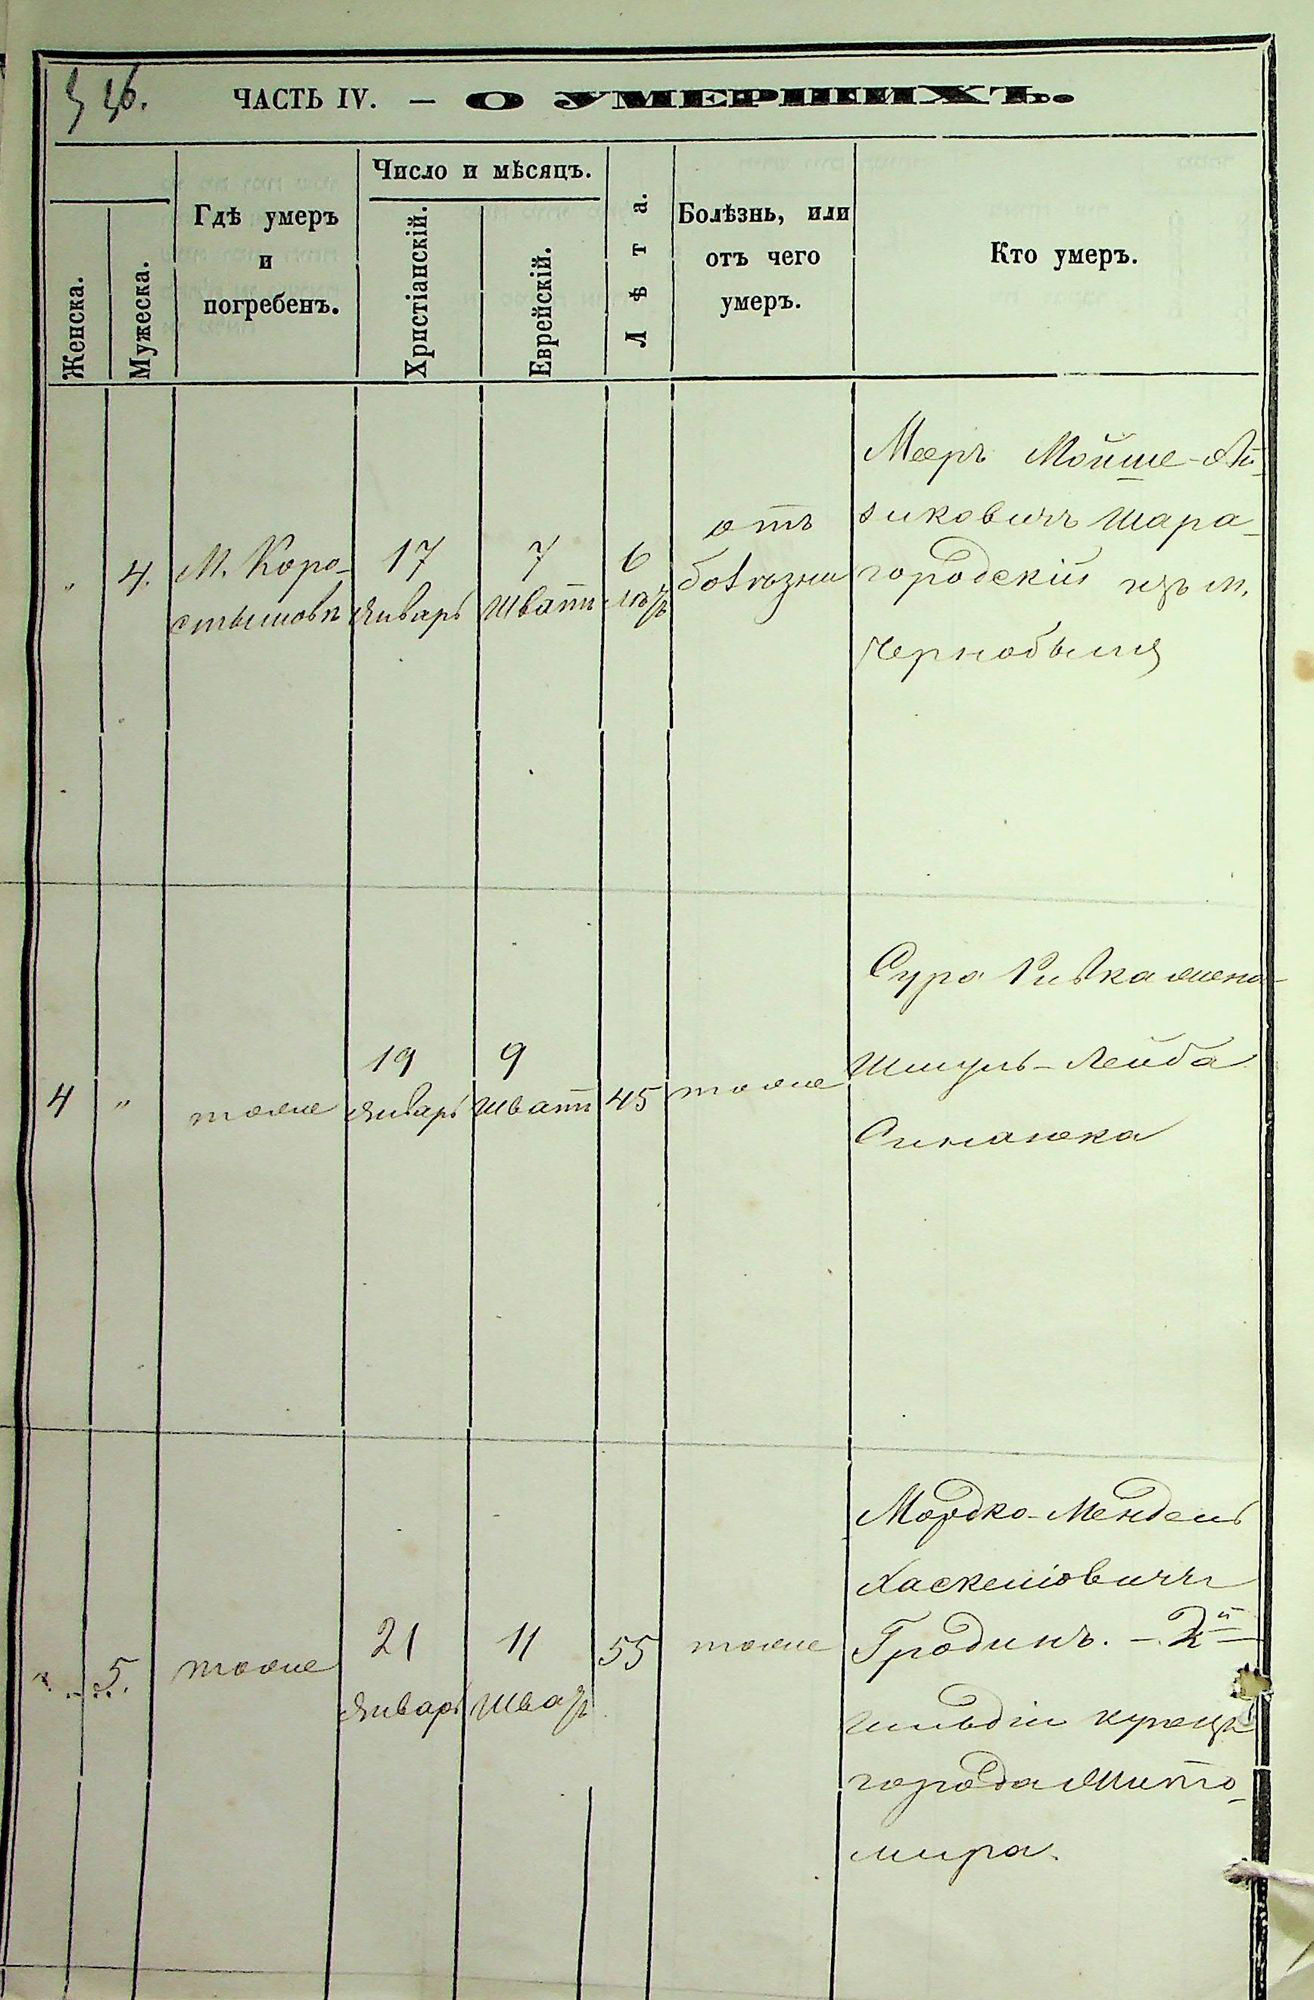 ЧАСТЬ IV. — О УМЕРШИХЪ.
Женска.
Мужеска.
Гдѣ умеръ
и
погребенъ.
Число и мѣсяцъ.
Христіанскій.
Еврейскій.
Лѣта.
Болѣзнь, или
отъ чего
умеръ.
Кто умеръ.
" 4.
М. Коро-
стышовѣ
17
Январь
7
Шватъ
6
лѣтъ
отъ
болѣзни
Мееръ Мойше-Ай-
зиковичъ Шара-
городскій изъ м.
Чернобыля
4 "
тоже
19
Январь
9
Шватъ
45
тоже
Сура Ривка жена
Шмуль-Лейба
Синаюка
" 5.
тоже
21
Январь
11
Шватъ
55
тоже
Мордко-Мендель
Хаскеліовичъ
Гродинъ. — 2й
гильдіи купецъ
города Жито-
мира.